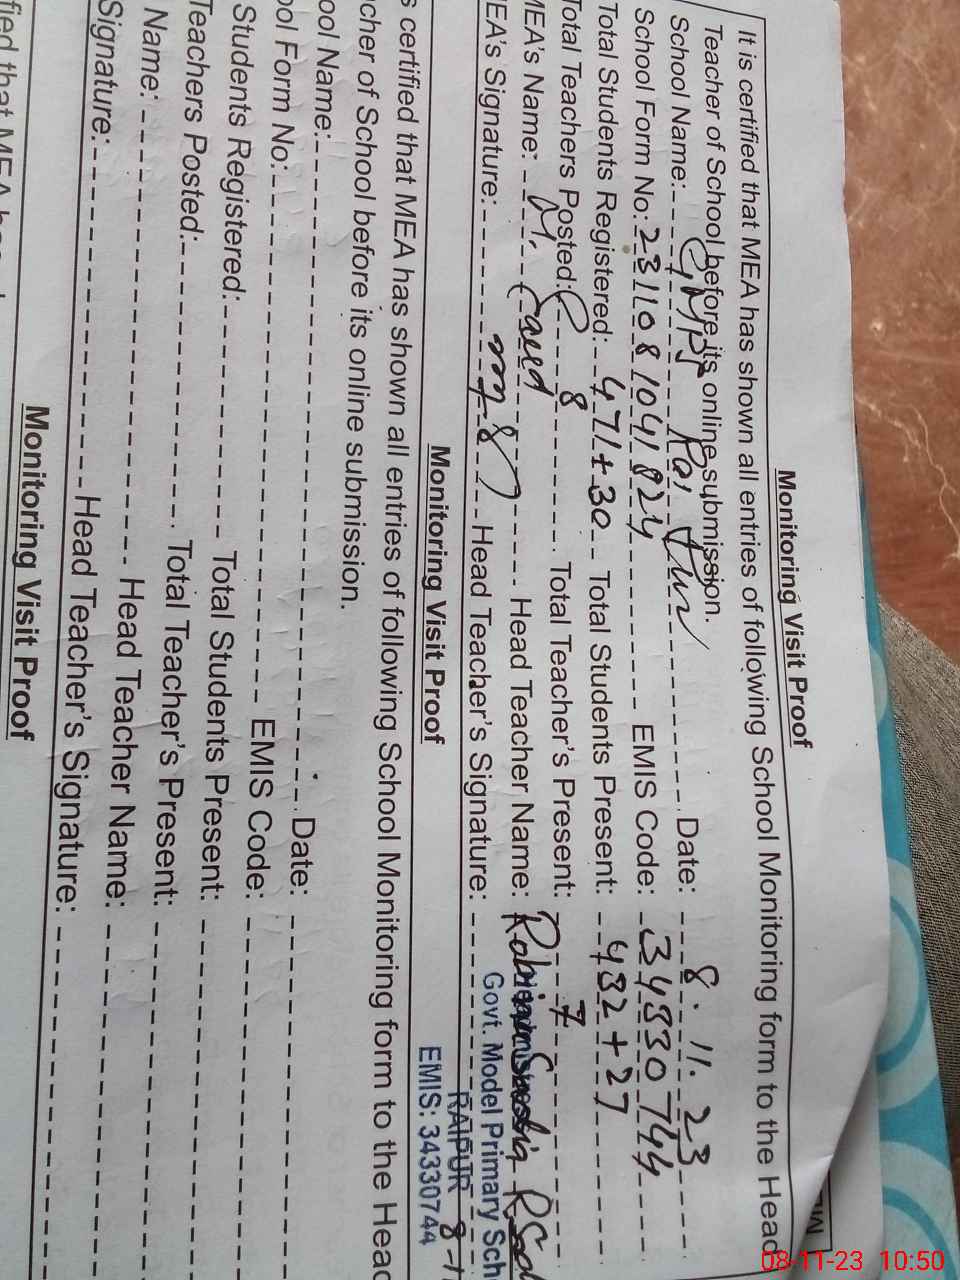 Monitoring Visit Proof
It is certified that MEA has shown all entries of following School Monitoring form to the Head
Teacher of School before its online submission.
School Name: GMPS Rai Pur Date: 8.11.23
School Form No: 2311081041824 EMIS Code: 34330744
Total Students Registered: 471+30 Total Students Present: 432+27
Total Teachers Posted: 8 Total Teacher's Present: 7
MEA's Name: M. Head Teacher Name:
MEA's Signature: Head Teacher's Signature:
Govt. Model Primary Sch
RAIPUR
EMIS: 34330744
Monitoring Visit Proof
s certified that MEA has shown all entries of following School Monitoring form to the Head
cher of School before its online submission.
ool Name: Date:
ol Form No: EMIS Code:
Students Registered: Total Students Present:
Teachers Posted: Total Teacher's Present:
Name: Head Teacher Name:
Signature: Head Teacher's Signature:
Monitoring Visit Proof
fied that MEA
08-11-23 10:50